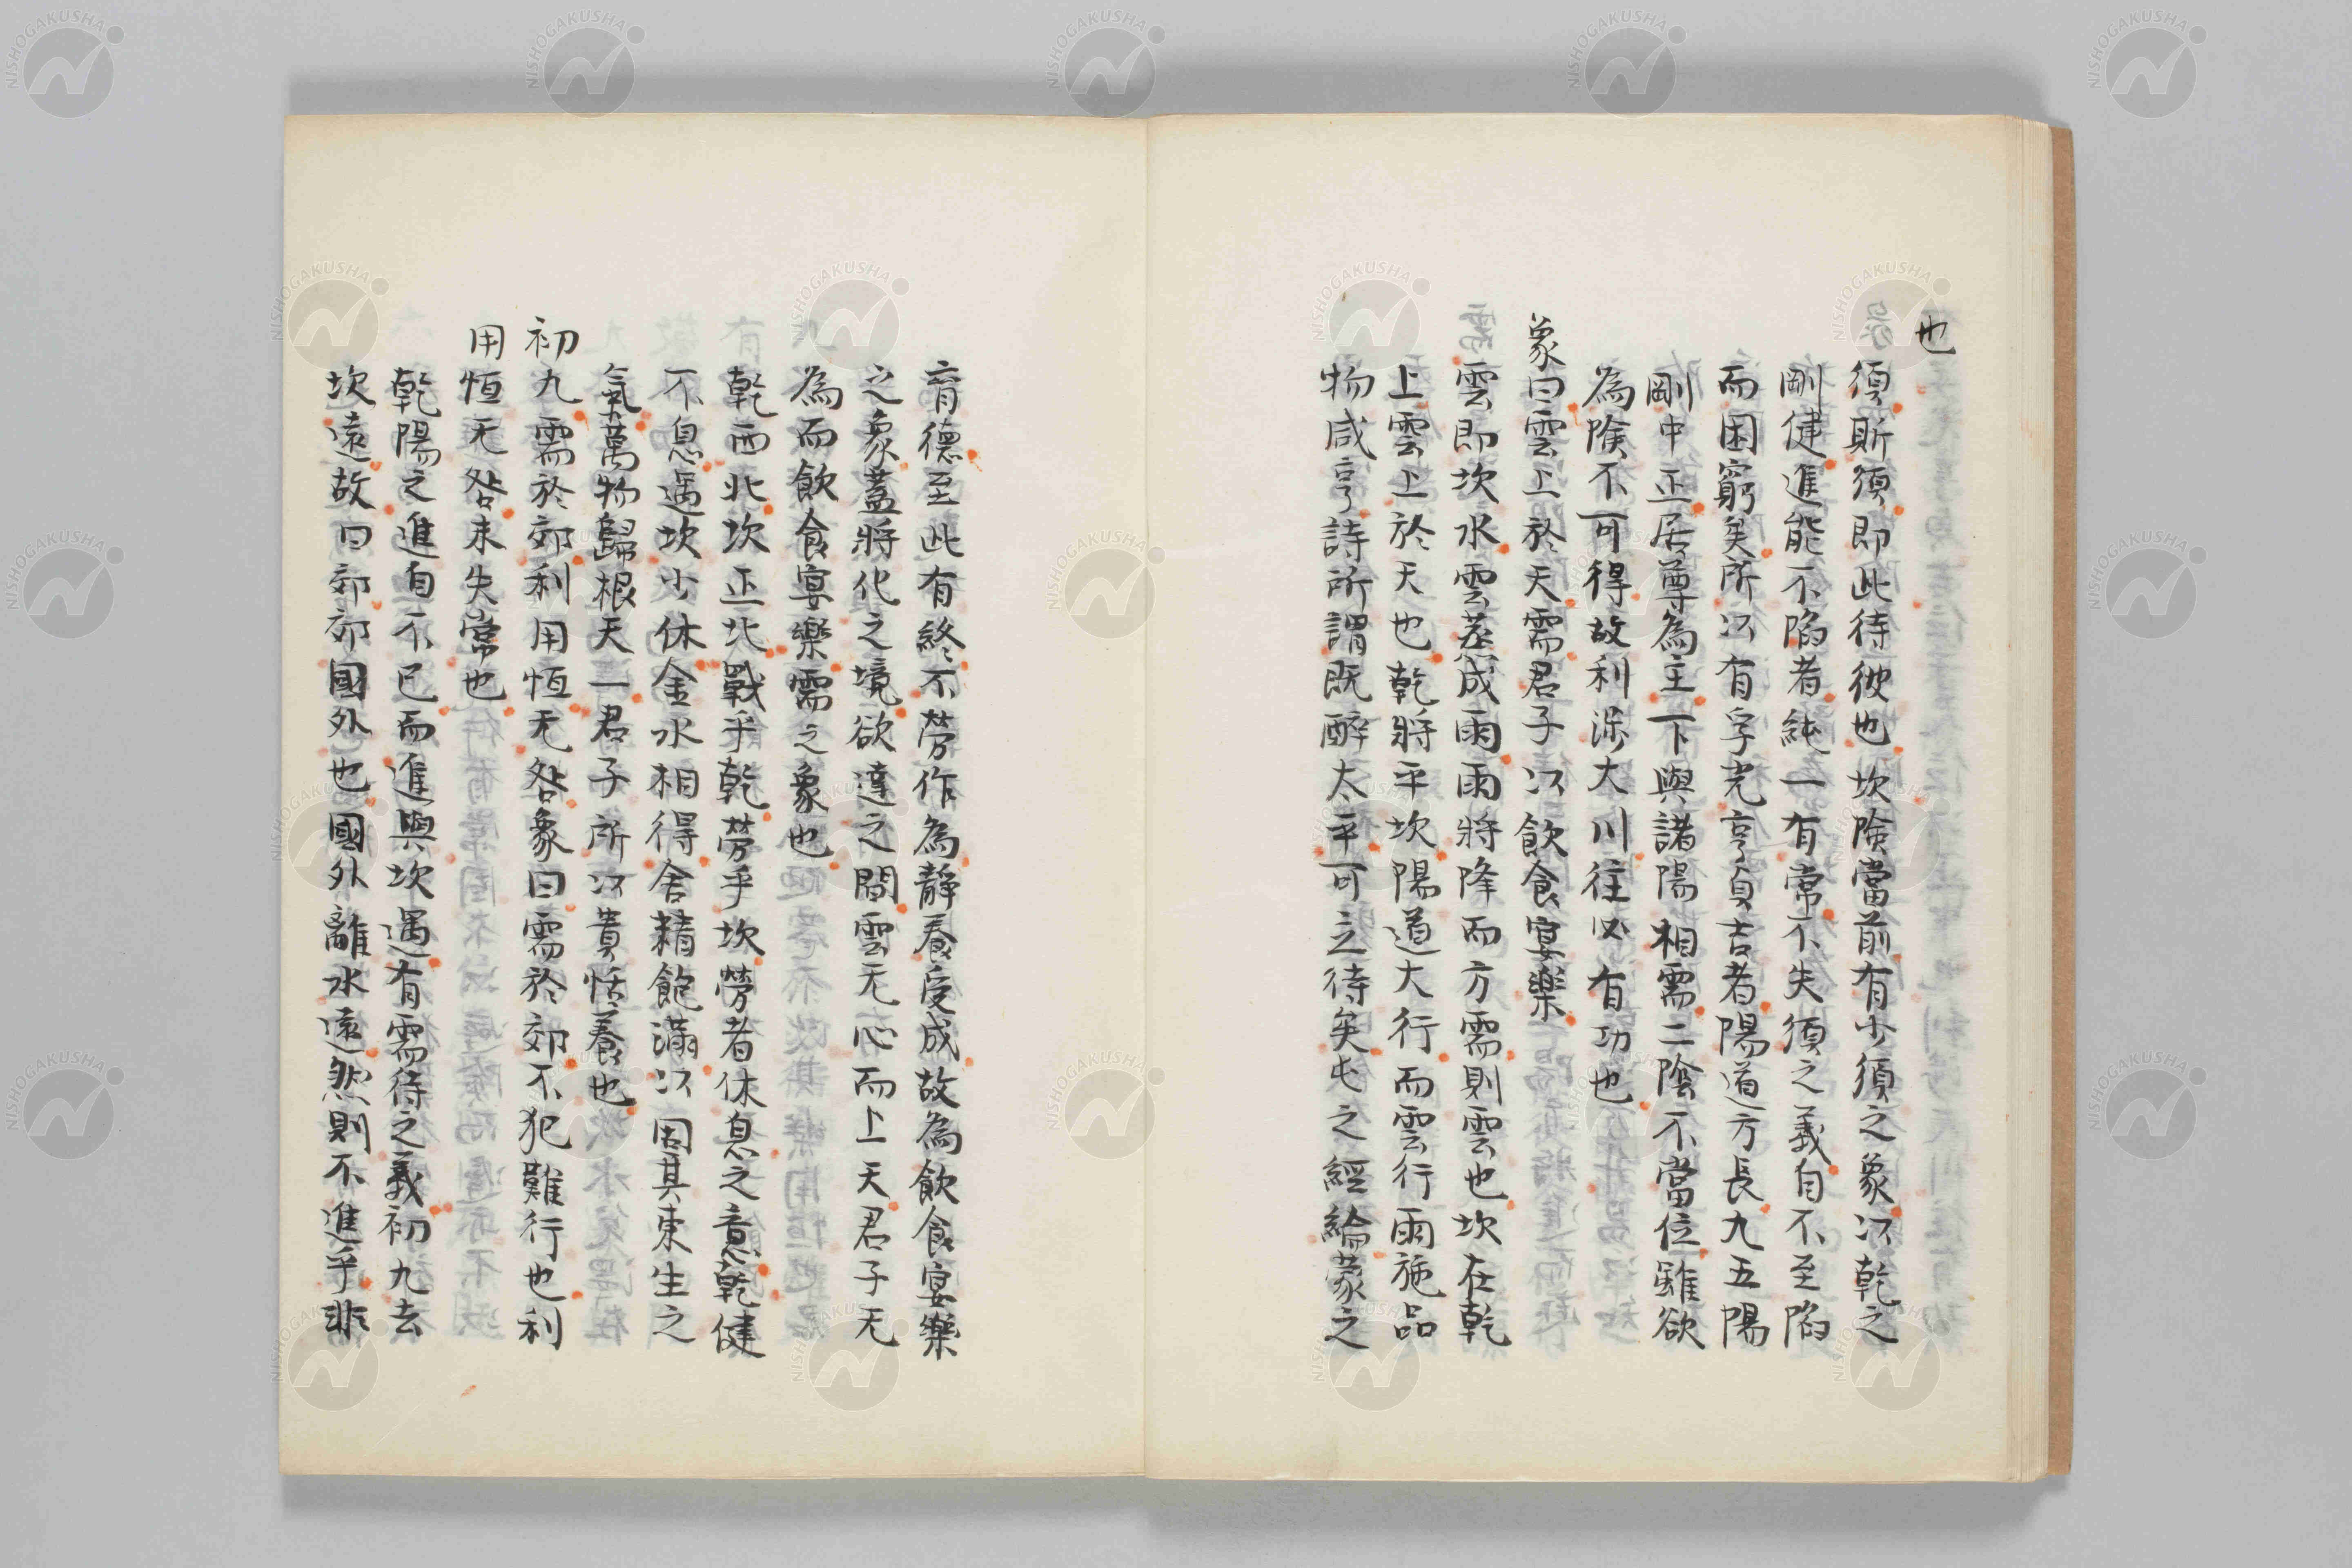 也
須斯須即此待彼也坎険當前有少須之象以乾之
剛健進能不陷者純一有常不失須之義自不至陷
而困窮矣所以有孚光亨貞吉者陽道方長九五陽
剛中正居尊為主下與諸陽相需二陰不當位雖欲
為険不可得故利涉大川往必有功也
象曰雲上於天需君子以飲食宴樂
雲即坎水雲蒸成雨雨將降而方需則雲也坎在乾
上雲上於天也乾將平坎陽道大行而雲行雨施品
物咸亨詩所謂既醉太平可立待矣屯之經綸蒙之
育德至此有終不勞作為靜養受成故為飲食宴樂
之象蓋將化之境欲達之間雲无心而上天君子无
為而飲食宴樂需之象也
乾西北坎正北戰乎乾勞乎坎勞者休息之意乾健
不息遇坎少休金水相得舍精飽滿以固其束生之
氣萬物歸根天一君子所以貴恬養也
初九需於郊利用恒无咎象曰需於郊不犯難行也利
用恒无咎未失常也
乾陽之進自不已而進與坎遇有需待之義初九去
坎遠故曰郊郊國外也國外離水遠然則不進乎非
NISHOGAKUSHA